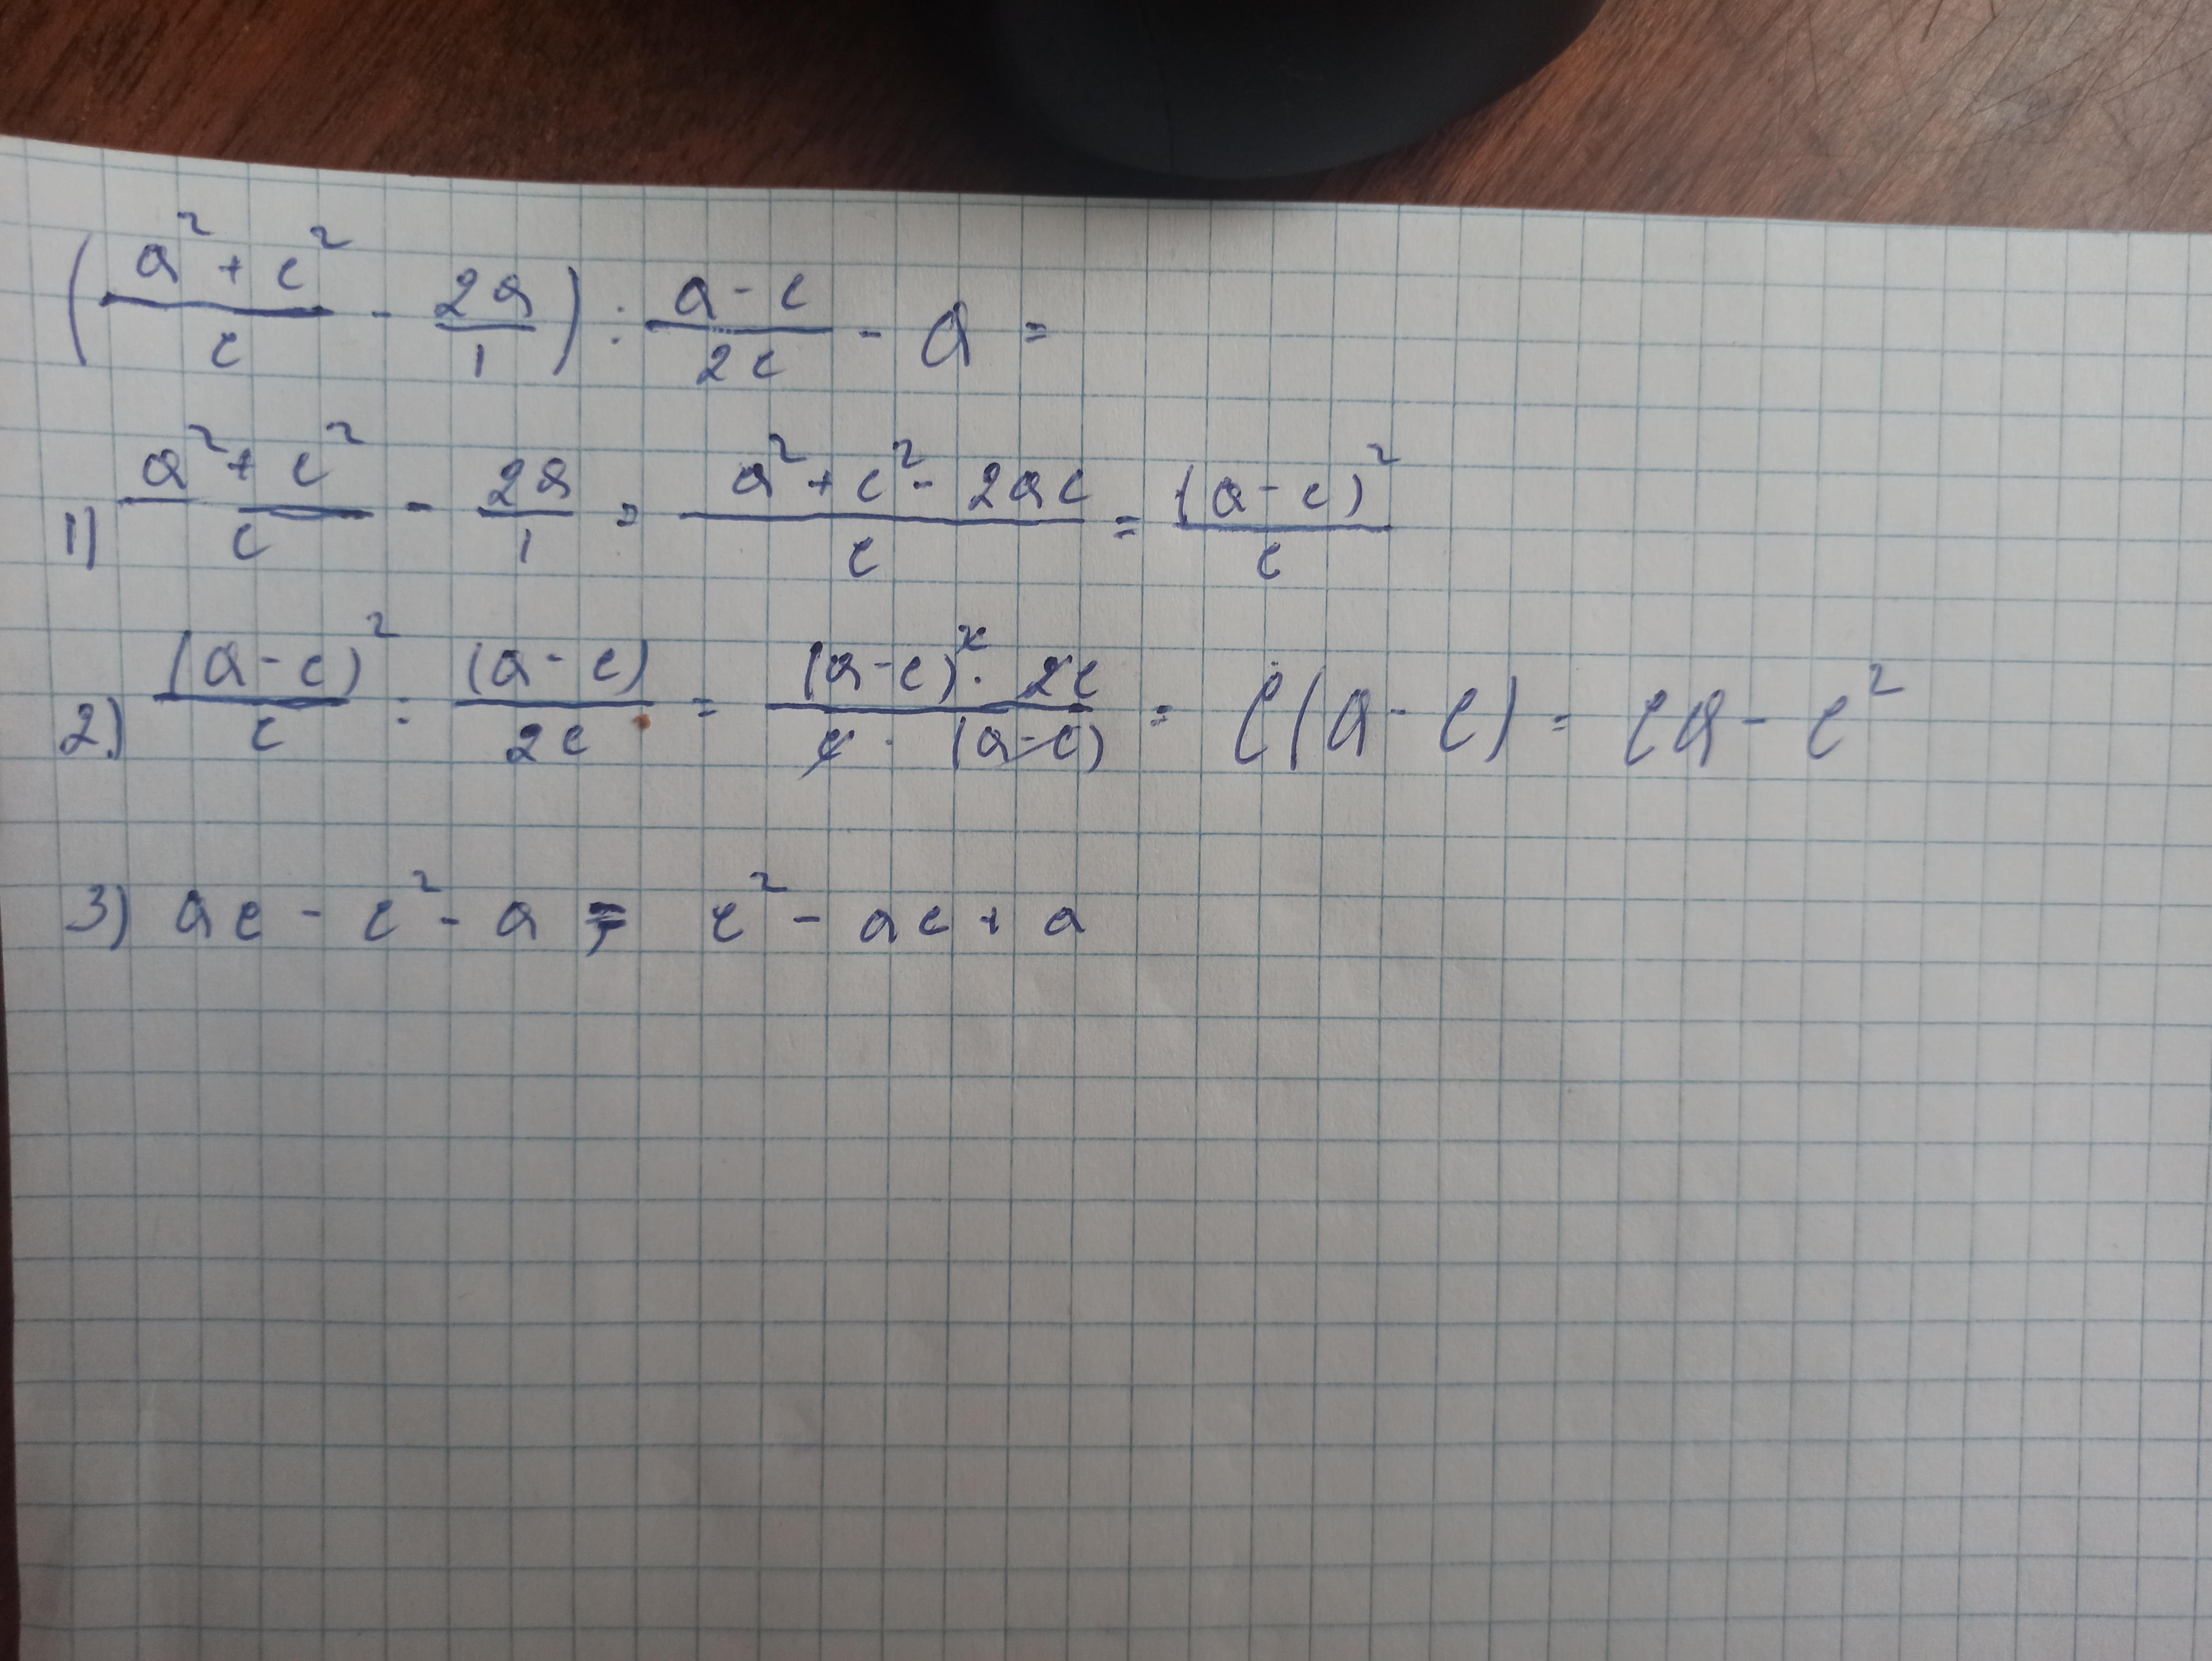 (a² + c² / c - 2a / 1) : a - c / 2c - a =
1) a² + c² / c - 2a / 1 = a² + c² - 2ac / c = (a - c)² / c
2) (a - c)² / c : (a - c) / 2c = (a - c)² · 2c / c · (a - c) = c(a - c) = ca - c²
3) ac - c² - a = c² - ac + a